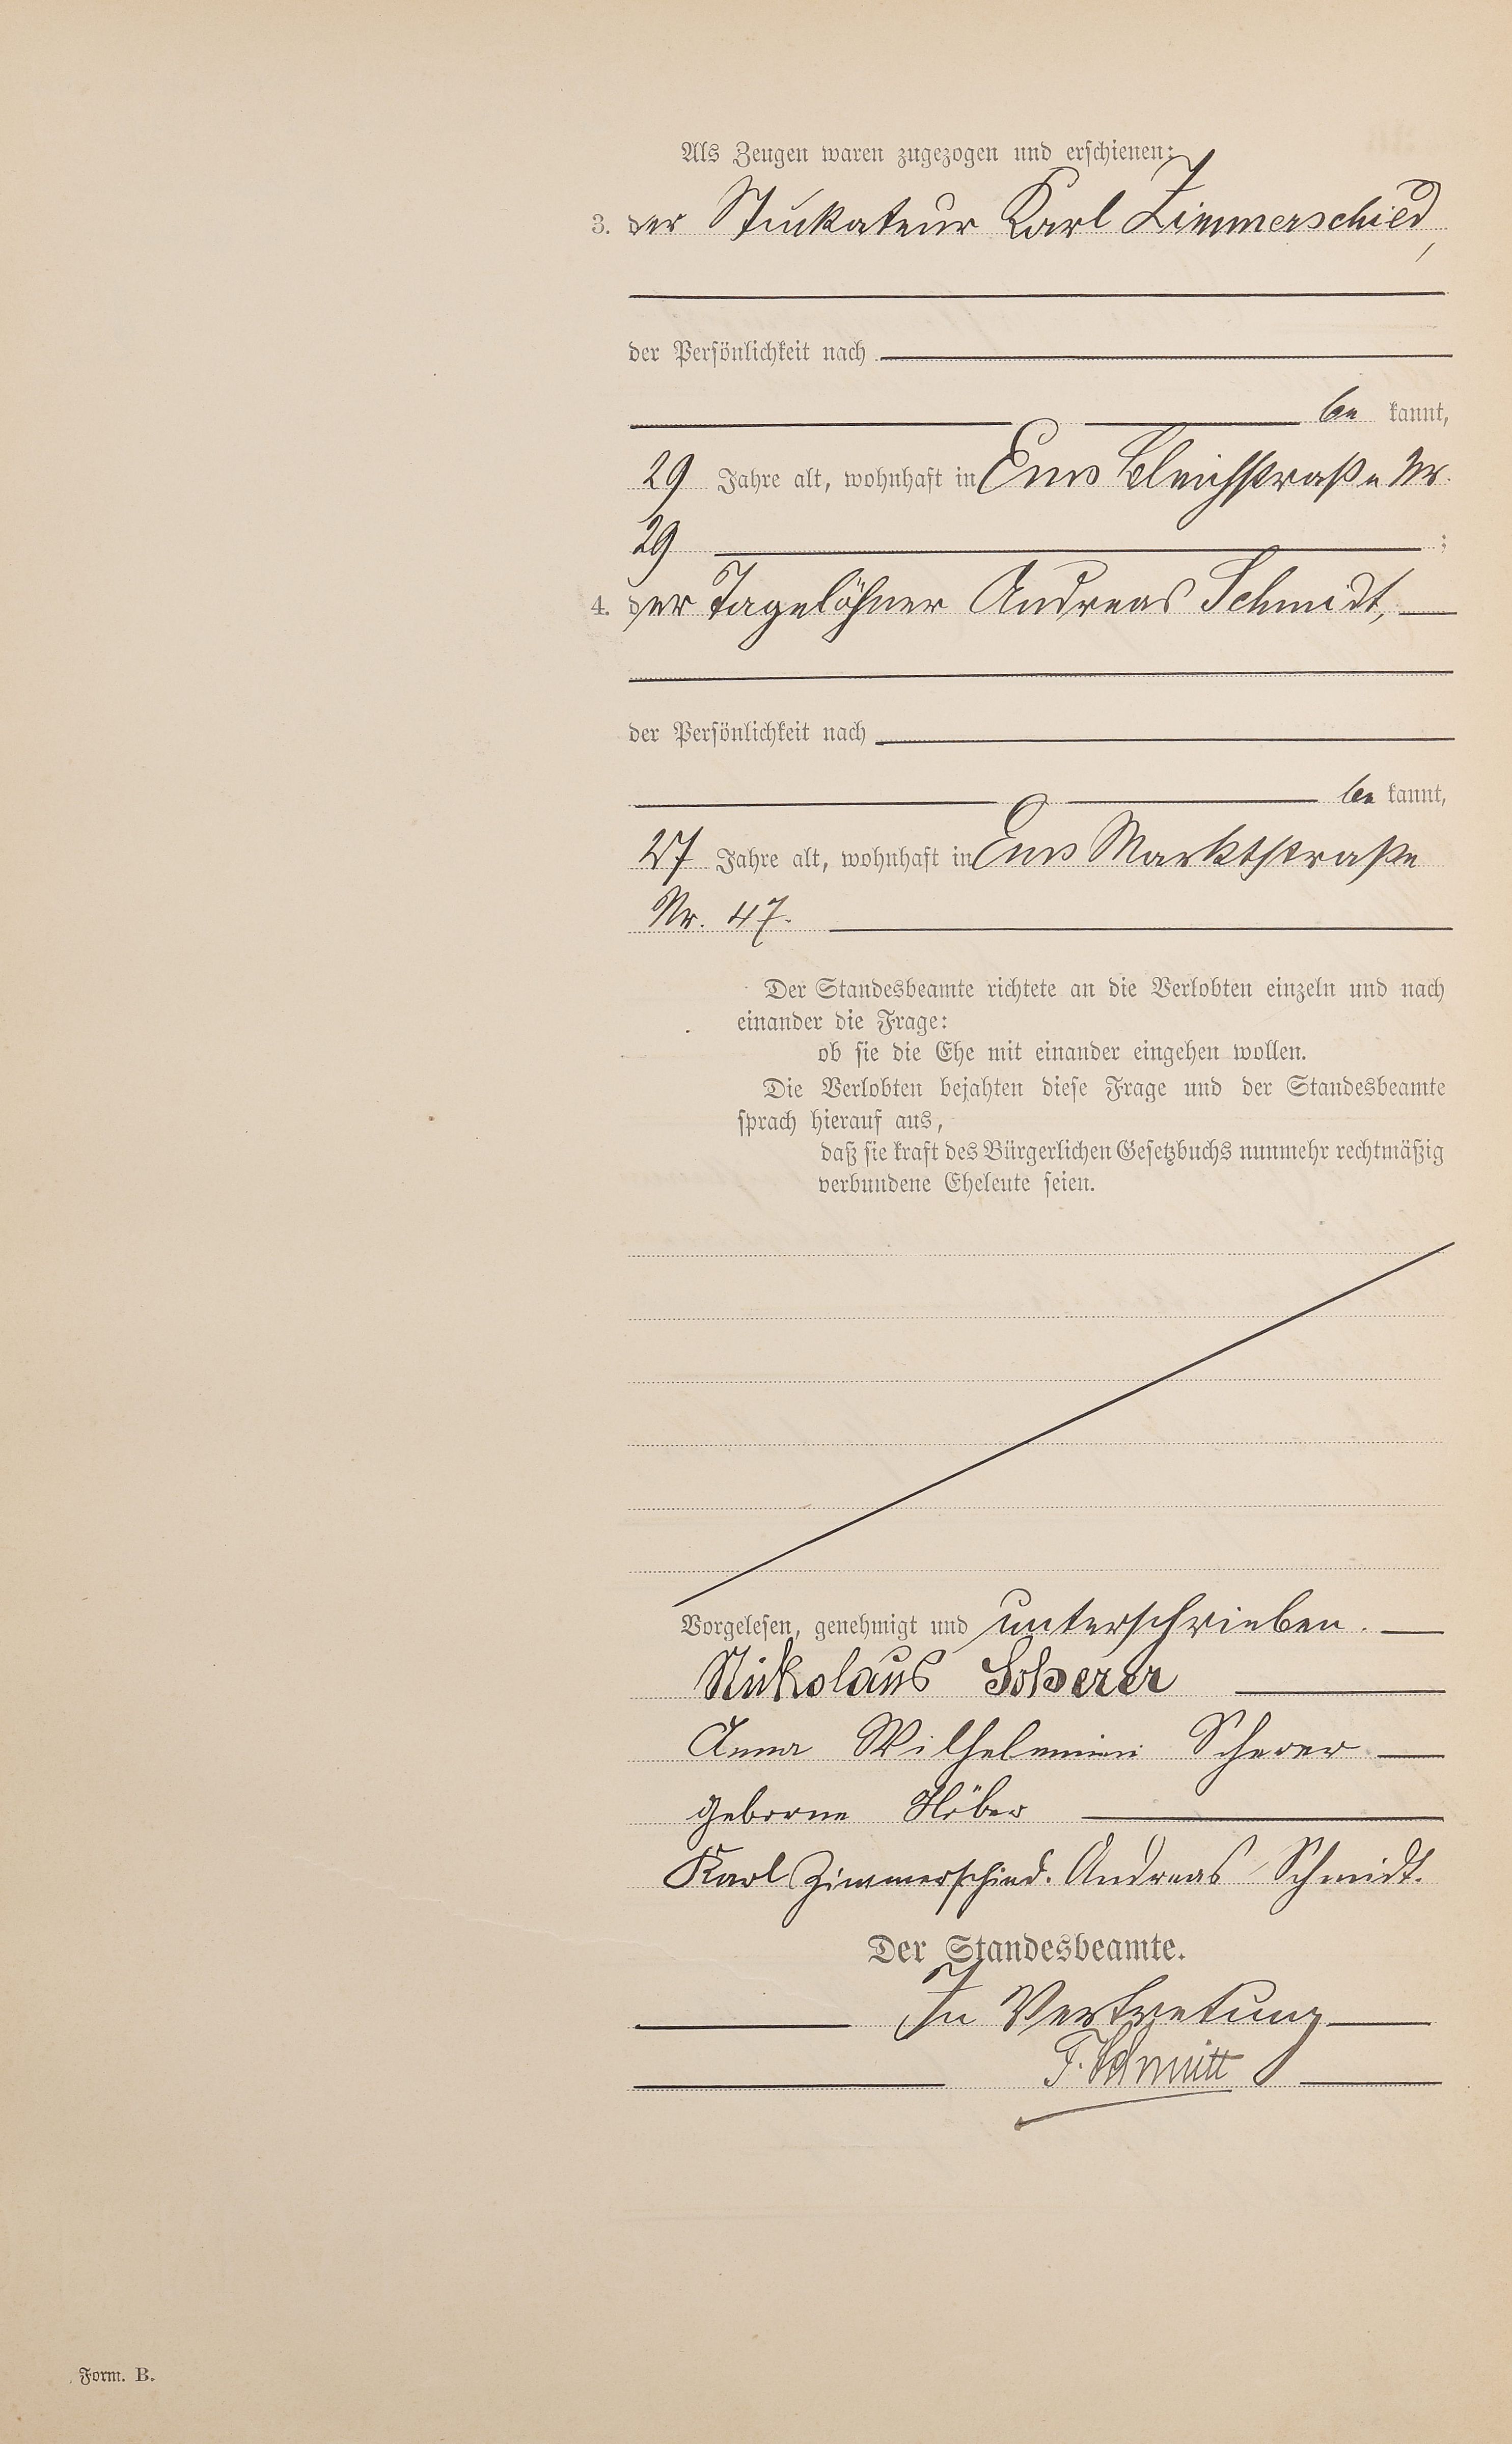 Als Zeugen waren zugezogen und erschienen:
3. der Stuckateur Karl Zimmerschied,
der Persönlichkeit nach
be kannt,
29 Jahre alt, wohnhaft in Ems Bleichstraße Nr.
29 ;
4. der Tagelöhner Andreas Schmidt,
der Persönlichkeit nach
be kannt,
27 Jahre alt, wohnhaft in Ems Marktstraße
Nr. 47.
Der Standesbeamte richtete an die Verlobten einzeln und nach
einander die Frage:
ob sie die Ehe mit einander eingehen wollen.
Die Verlobten bejahten diese Frage und der Standesbeamte
sprach hierauf aus,
daß sie kraft des Bürgerlichen Gesetzbuchs nunmehr rechtmäßig
verbundene Eheleute seien.
Vorgelesen, genehmigt und unterschrieben.
Nikolaus Scherer
Anna Wilhelmine Scherer
geborne
Karl Zimmerschied. Andreas Schmidt.
Der Standesbeamte.
In Vertretung
F. Schmitt
Form. B.